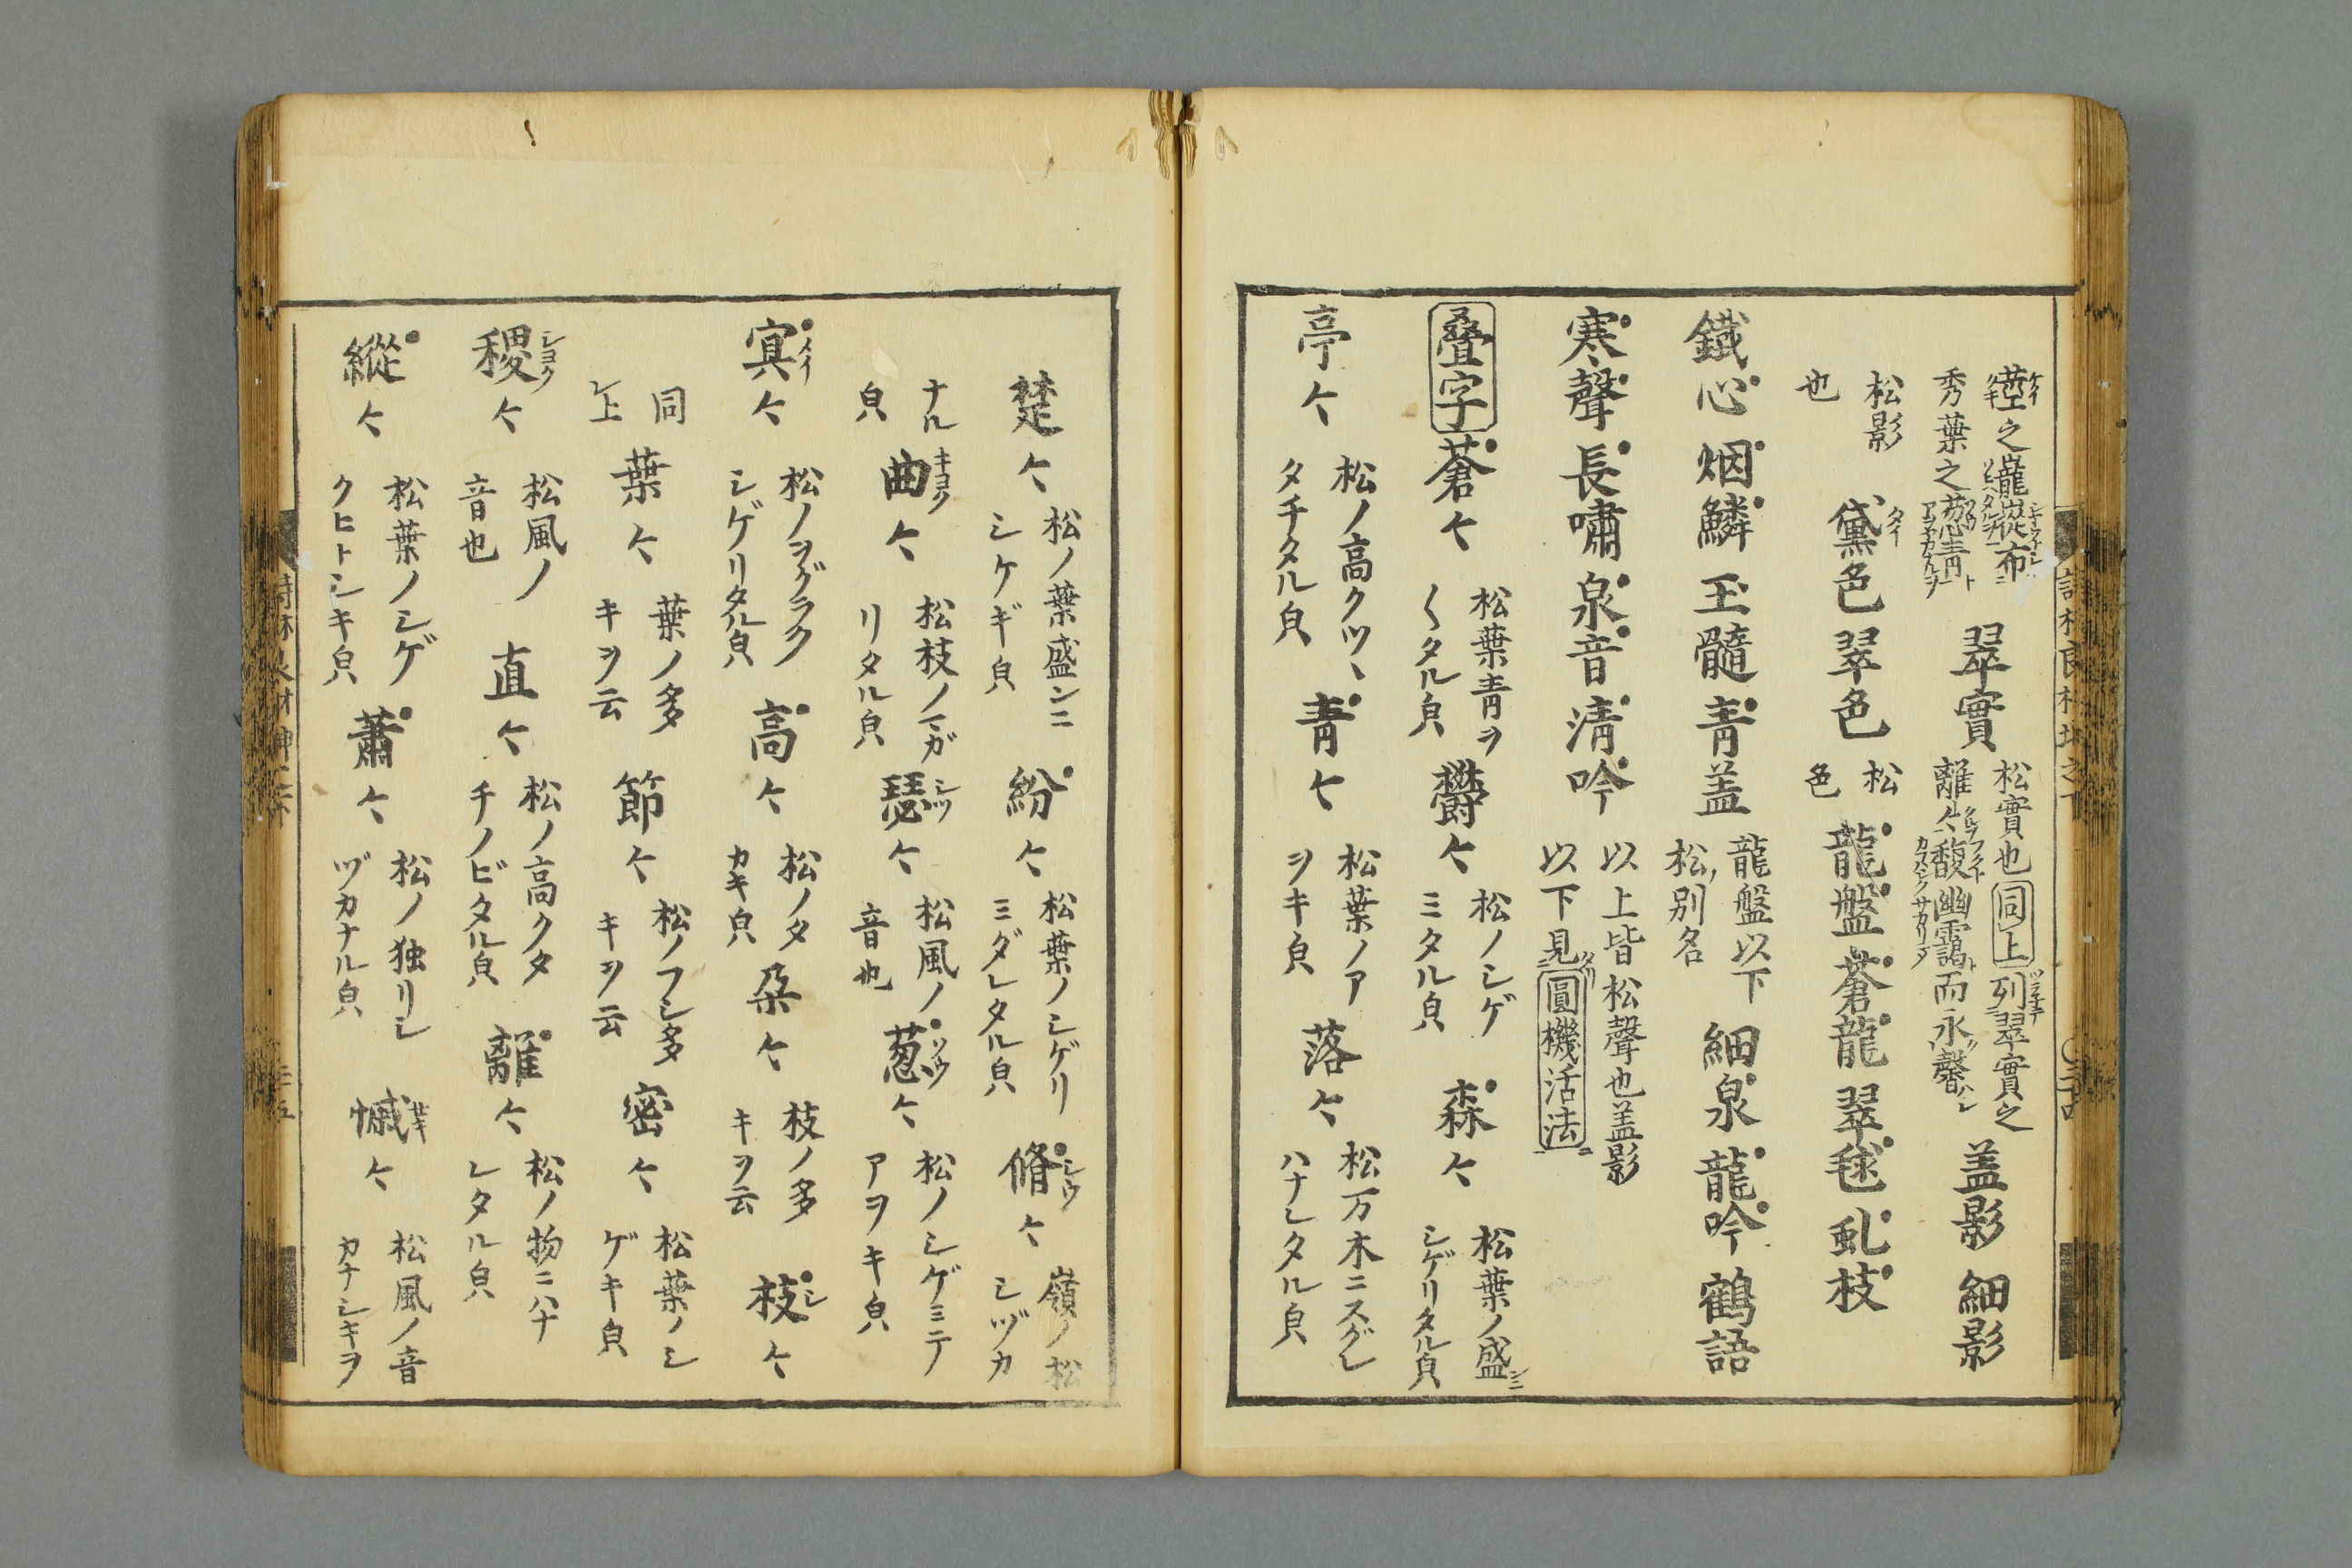 之巃嵷布
秀葉之葱青
翠實
松實也同上列翠實之
離々馥幽靄而永馨
盖影 細影
松影
也
黛色 翠色
松
色
龍盤 蒼龍 翠毬 虬枝
鐵心 烟鱗 玉髓 青盖
龍盤以下
松ノ別名
細泉 龍吟 鶴語
寒聲 長嘯 泉音 清吟
以上皆松聲也盖影
以下見圓機活法
疊字
蒼々
松葉青ヲ
〱タル皃
欝々
松ノシゲ
ミタル皃
森々
松葉ノ盛ンニ
シゲリタル皃
亭々
松ノ高クツヽ
タチタル皃
青々
松葉ノア
ヲキ皃
落々
松万木ニスグレ
ハナレタル皃
楚々
松ノ葉盛ンニ
シケギ皃
紛々
松葉ノシゲリ
ミダレタル皃
脩々
シウ
嶺ノ松
シヅカ
ナル
皃
曲々
キヨク
松枝ノマガ
リタル皃
瑟々
シツ
松風ノ
音也
葱々
ソウ
松ノシゲミテ
アヲキ皃
寘々
メイ
松ノヲグラク
シゲリタル皃
高々
松ノタ
カキ皃
朶々
枝ノ多
キヲ云
枝々
シ
同
レ上
葉々
葉ノ多
キヲ云
節々
松ノフシ多
キヲ云
密々
松葉ノシ
ゲキ皃
稷々
シヨク
松風ノ
音也
直々
松ノ高クタ
チノビタル皃
離々
松ノ物ニハナ
レタル皃
縱々
松葉ノシゲ
クヒトシキ皃
蕭々
松ノ独リシ
ヅカナル皃
慽々
セキ
松風ノ音
カナシキヲ